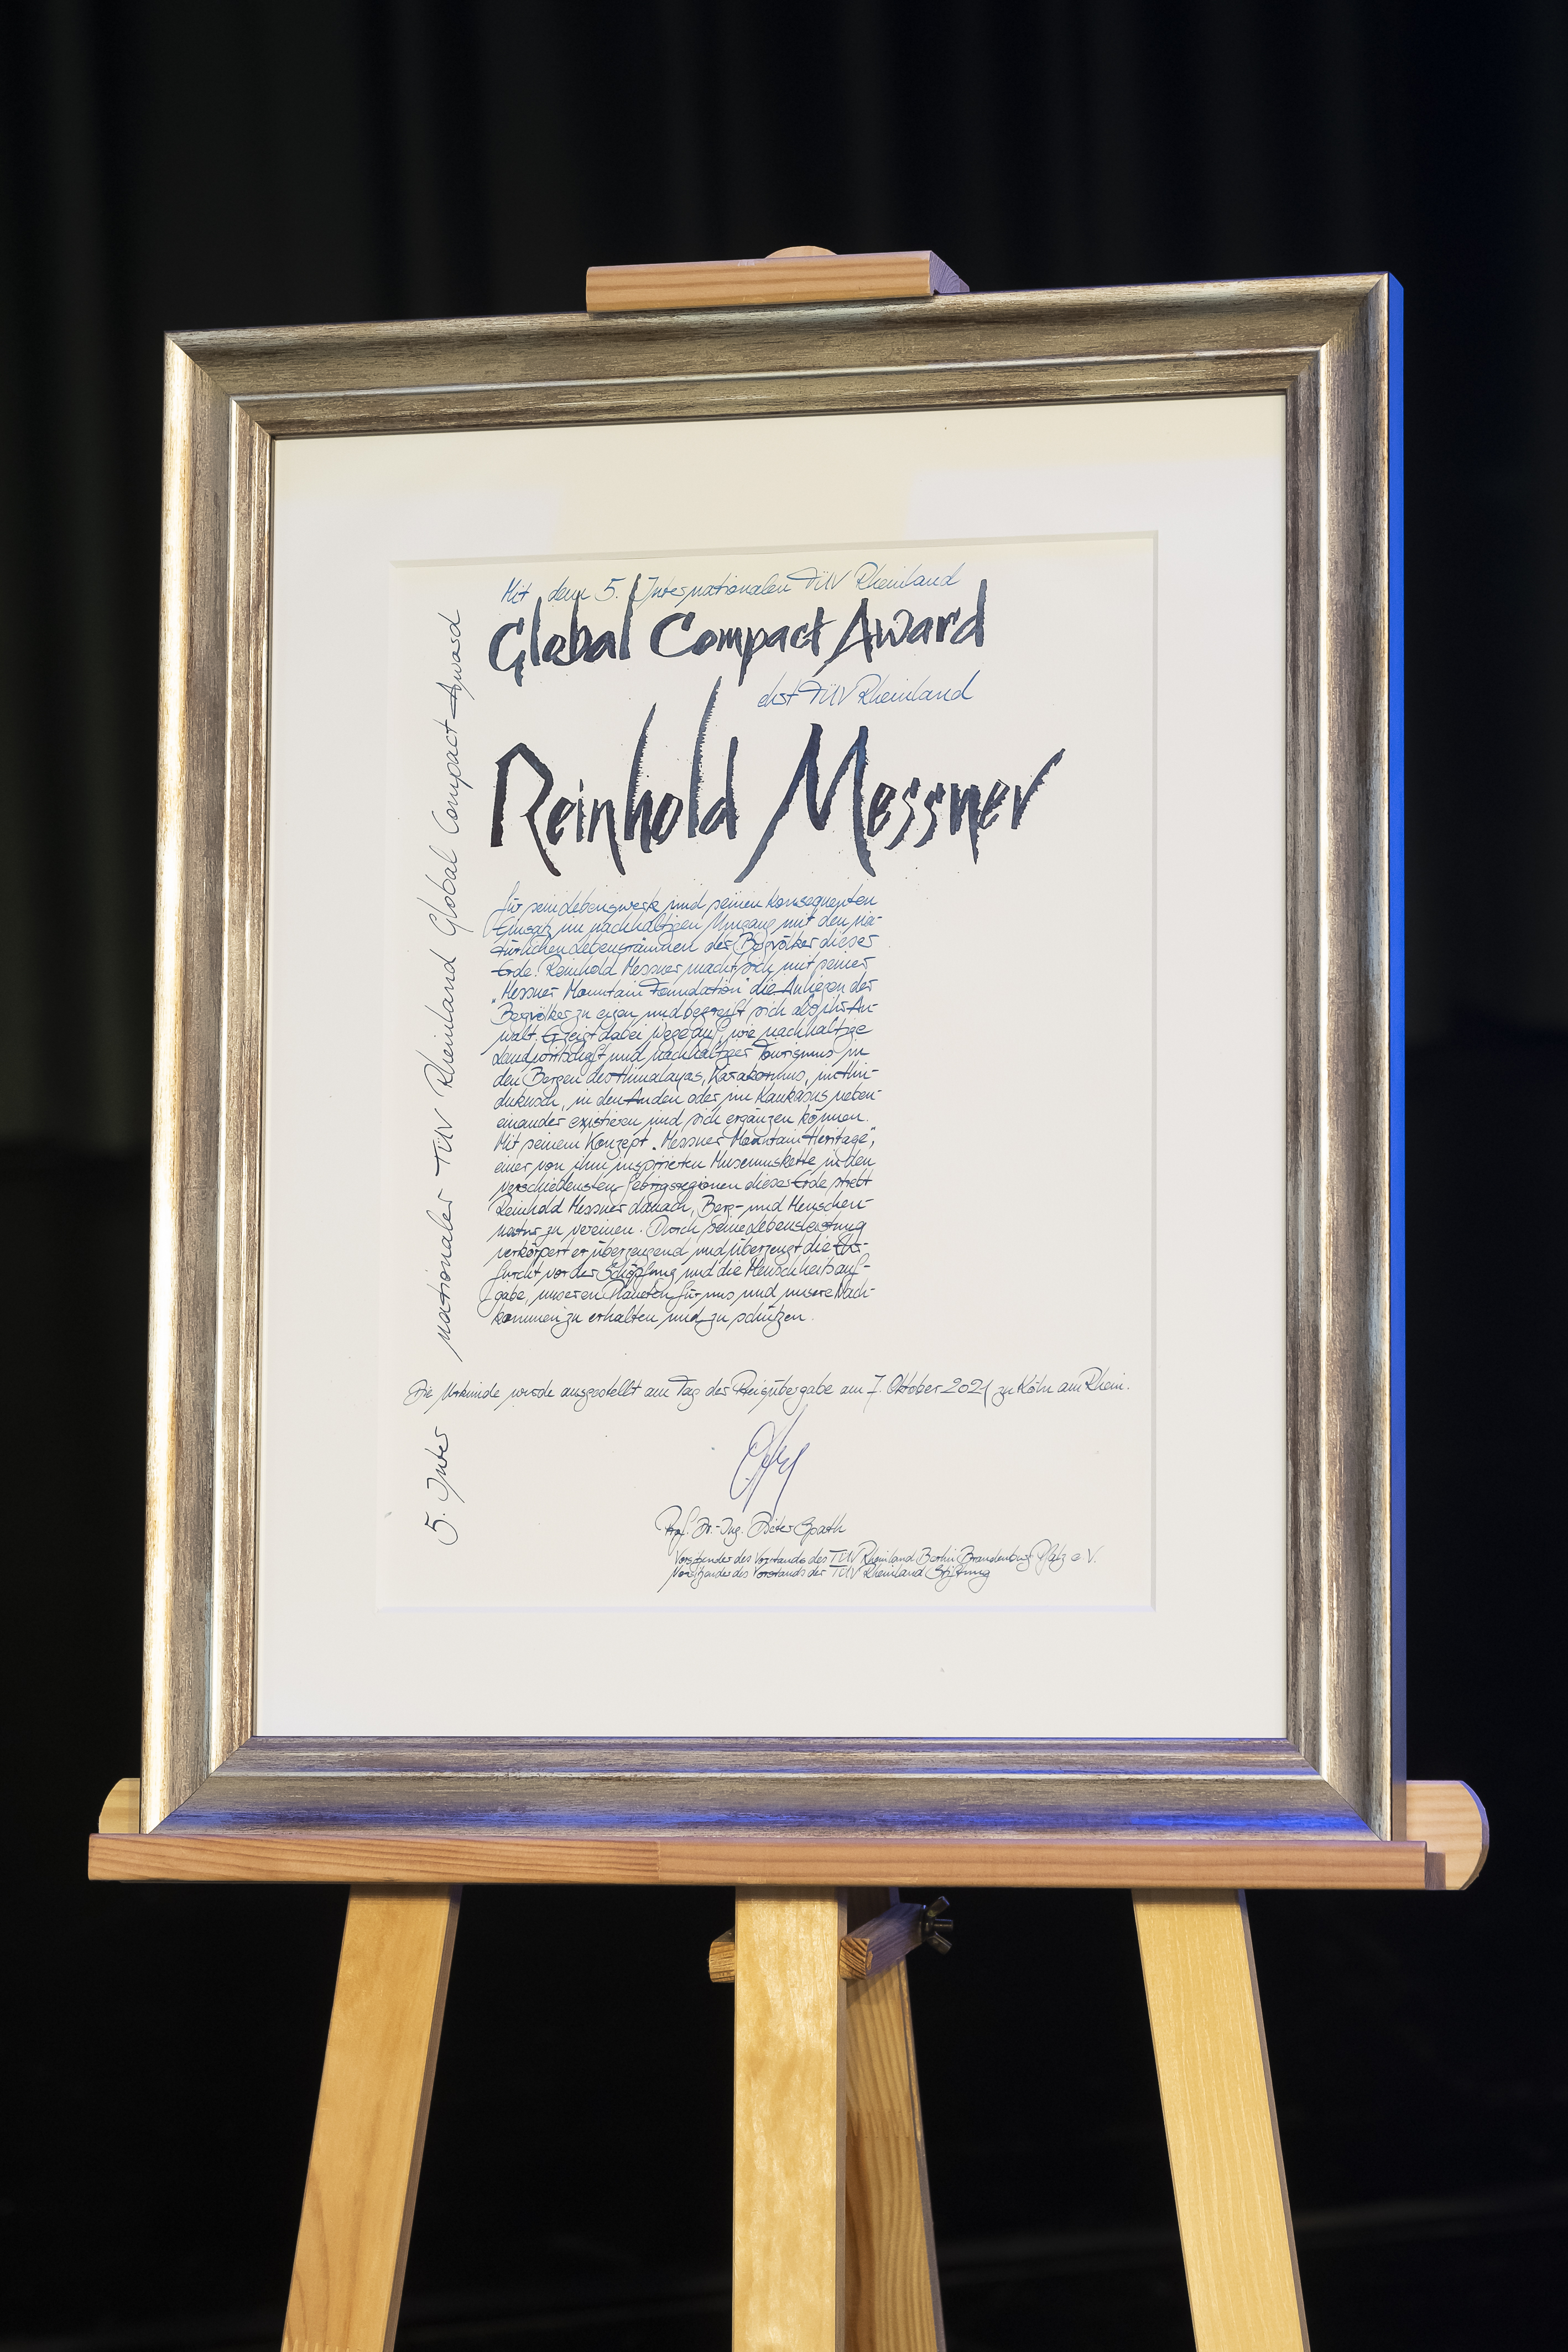 Mit dem 5. Internationalen TÜV Rheinland
Global Compact Award
ehrt TÜV Rheinland
Reinhold Messner
für sein Lebenswerk und seinen konsequenten
Einsatz im nachhaltigen Umgang mit den na-
türlichen Lebensräumen der Bergvölker dieser
Erde. Reinhold Messner macht sich mit seiner
„Messner Mountain Foundation" die Anliegen der
Bergvölker zu eigen und begreift sich als ihr An-
walt. Er zeigt dabei Wege auf, wie nachhaltige
Landwirtschaft und nachhaltiger Tourismus in
den Bergen des Himalayas, Karakorums, im Hin-
dukusch, in den Anden oder im Kaukasus neben-
einander existieren und sich ergänzen können.
Mit seinem Konzept „Messner Mountain Heritage",
einer von ihm inspirierten Museumskette in den
verschiedensten Gebirgsregionen dieser Erde strebt
Reinhold Messner danach, Berg- und Menschen-
natur zu vereinen. Durch seine Lebensleistung
verkörpert er überzeugend und überzeugt die Ehr-
furcht vor der Schöpfung und die Menschheitsauf-
gabe, unseren Planeten für uns und unsere Nach-
kommen zu erhalten und zu schützen.
Die Urkunde wurde ausgestellt am Tag der Preisübergabe am 7. Oktober 2021 zu Köln am Rhein.
Prof. Dr.-Ing. Dieter Spath
Vorsitzender des Vorstands des TÜV Rheinland Berlin Brandenburg Pfalz e.V.
Vorsitzender des Vorstands der TÜV Rheinland Stiftung
5. Internationaler TÜV Rheinland Global Compact Award